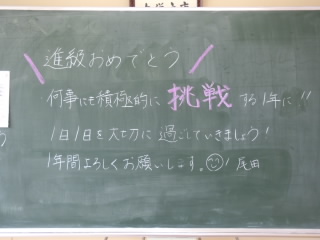 進級おめでとう
何事にも積極的に挑戦する1年に!!
1日1日を大切に過ごしていきましょう!
1年間よろしくお願いします。尾田